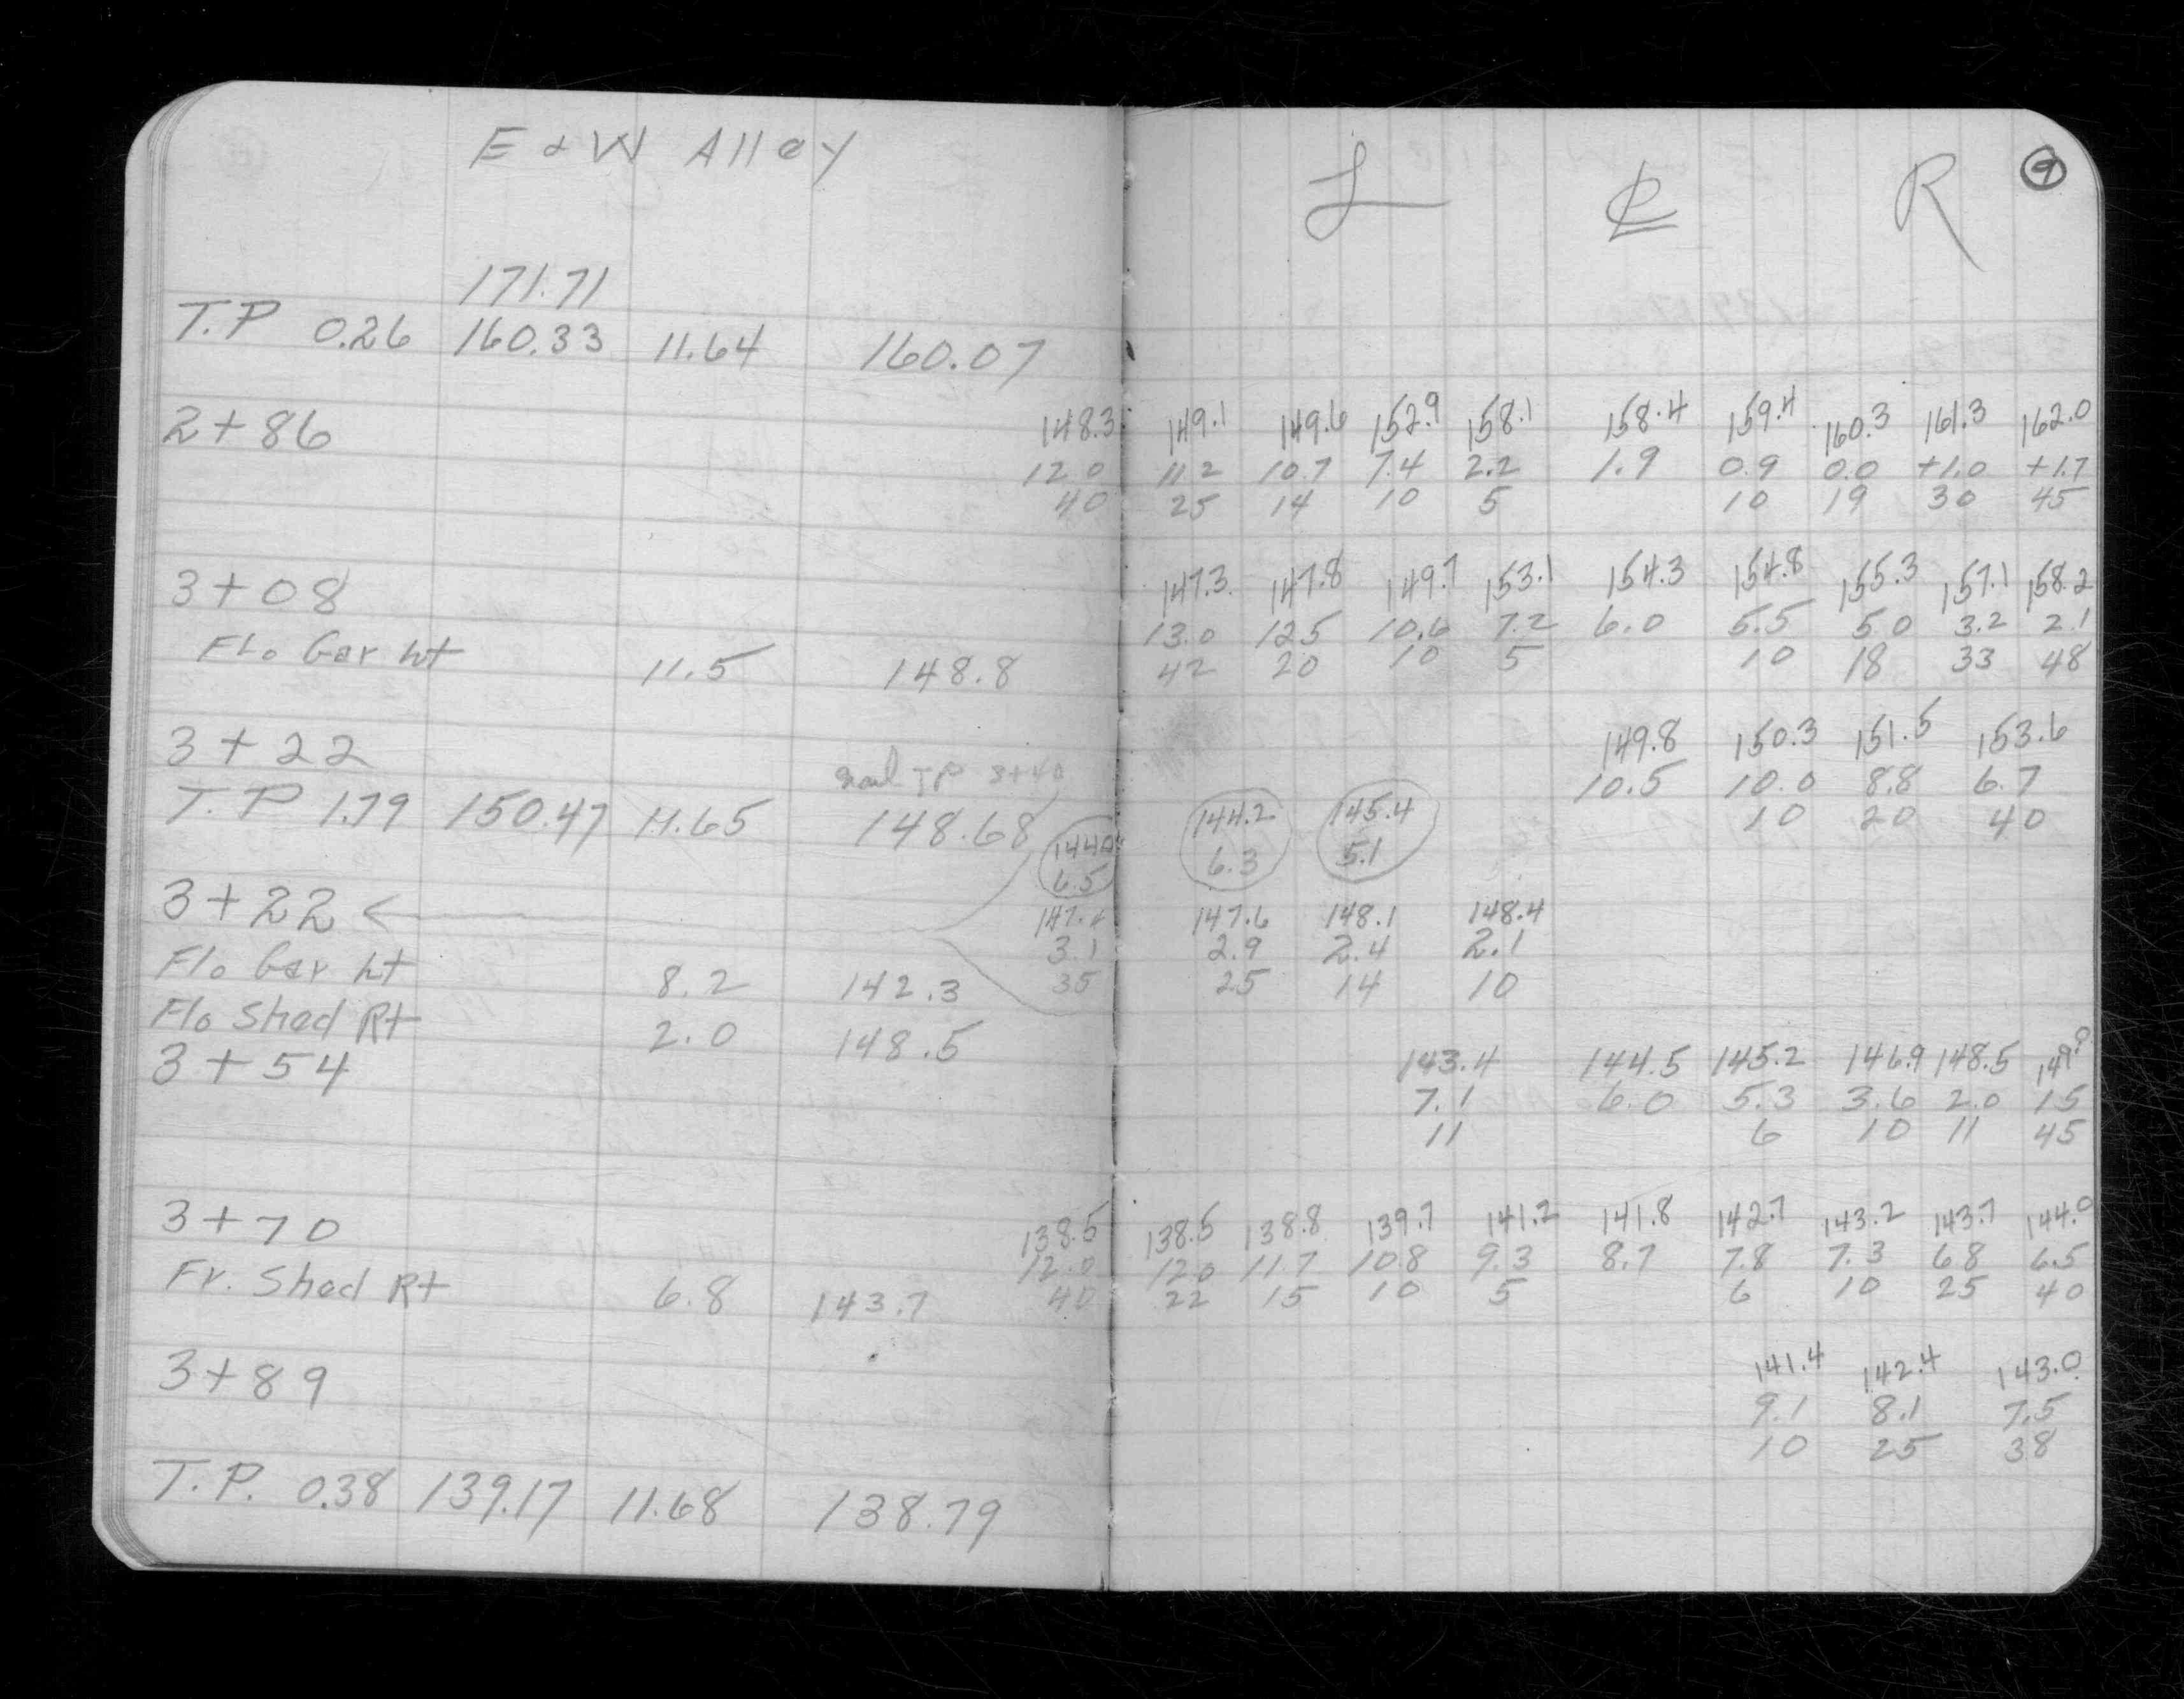 E & W Alley
L ℄ R 9
171.71
T.P 0.26 160.33 11.64 160.07
2+86
148.3 149.1 149.6 152.9 158.1 158.4 159.4 160.3 161.3 162.0
12.0 11.2 10.7 7.4 2.2 1.9 0.9 0.0 +1.0 +1.7
40 25 14 10 5 10 19 30 45
3+08
147.3 147.8 149.7 153.1 154.3 154.8 155.3 157.1 158.2
13.0 12.5 10.6 7.2 6.0 5.5 5.0 3.2 2.1
Flo Gar Lt 11.5 148.8
42 20 10 5 10 18 33 48
3+22
149.8 150.3 151.5 153.6
10.5 10.0 8.8 6.7
10 20 40
TP 3+40
T.P 1.79 150.47 11.65 148.68
144.0 144.2 145.4
6.5 6.3 5.1
3+22 <
147.4 147.6 148.1 148.4
3.1 2.9 2.4 2.1
35 25 14 10
Flo Gar Lt 8.2 142.3
Flo Shed Rt 2.0 148.5
3+54
143.4 144.5 145.2 146.9 148.5 149.0
7.1 6.0 5.3 3.6 2.0 1.5
11 6 10 11 45
3+70
138.5 138.5 138.8 139.7 141.2 141.8 142.7 143.2 143.7 144.0
12.0 12.0 11.7 10.8 9.3 8.7 7.8 7.3 6.8 6.5
40 22 15 10 5 6 10 25 40
Fr. Shed Rt 6.8 143.7
3+89
141.4 142.4 143.0
9.1 8.1 7.5
10 25 38
T.P. 0.38 139.17 11.68 138.79